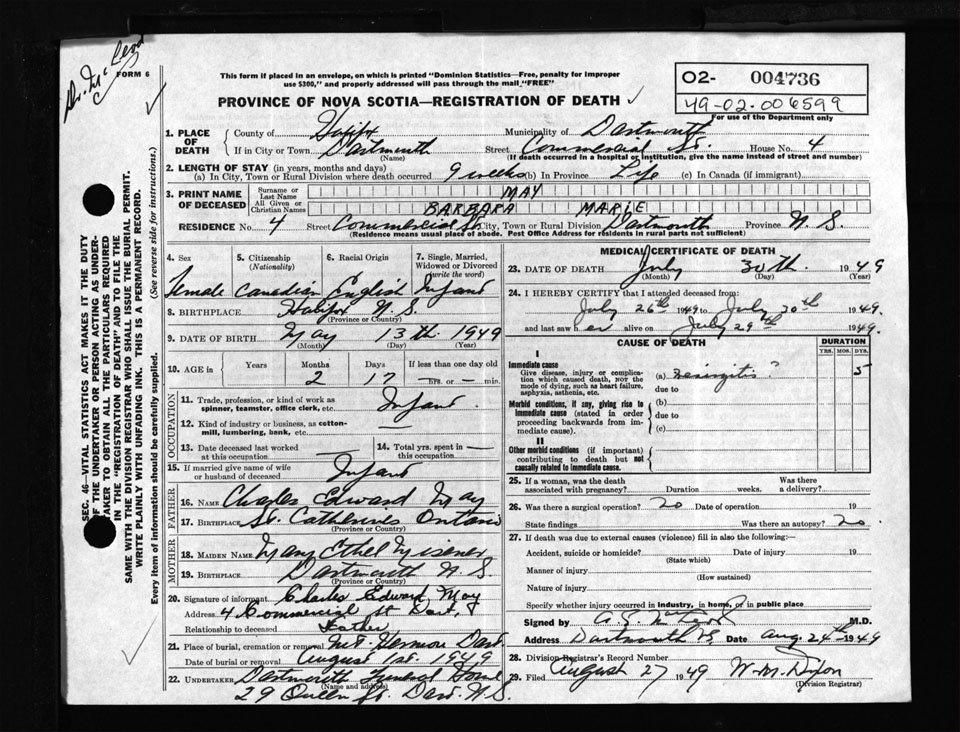 Dr. McLeod
FORM 6
This form if placed in an envelope, on which is printed "Dominion Statistics—Free, penalty for improper
use $300," and properly addressed will pass through the mail "FREE"
PROVINCE OF NOVA SCOTIA—REGISTRATION OF DEATH ✓
02- 004736
49-02-006599
For use of the Department only
1. PLACE OF DEATH
County of Halifax Municipality of Dartmouth
If in City or Town Dartmouth Street Commercial St. House No. 4
(Name) (If death occurred in a hospital or institution, give the name instead of street and number)
2. LENGTH OF STAY (in years, months and days)
(a) In City, Town or Rural Division where death occurred 9 weeks (b) In Province Life (c) In Canada (if immigrant)
3. PRINT NAME OF DECEASED
Surname or Last Name MAY
All Given or Christian Names BARBARA MARIE
RESIDENCE No. 4 Street Commercial St. City, Town or Rural Division Dartmouth Province N.S.
(Residence means usual place of abode. Post Office Address for residents in rural parts not sufficient)
4. Sex Female
5. Citizenship (Nationality) Canadian
6. Racial Origin English
7. Single, Married, Widowed or Divorced (write the word) Infant
8. BIRTHPLACE Halifax N.S.
(Province or Country)
9. DATE OF BIRTH May 13th 1949
(Month) (Day) (Year)
10. AGE in Years Months 2 Days 17 If less than one day old
— hrs. or — min.
OCCUPATION
11. Trade, profession, or kind of work as spinner, teamster, office clerk, etc. Infant
12. Kind of industry or business, as cotton-mill, lumbering, bank, etc. —
13. Date deceased last worked at this occupation —
14. Total yrs. spent in this occupation —
15. If married give name of wife or husband of deceased Infant
FATHER
16. NAME Charles Edward May
17. BIRTHPLACE St. Catherines Ontario
(Province or Country)
MOTHER
18. MAIDEN NAME Mary Ethel Misener
19. BIRTHPLACE Dartmouth N.S.
(Province or Country)
20. Signature of informant Charles Edward May
Address 4 Commercial St Dart.
Relationship to deceased Father
21. Place of burial, cremation or removal Mt. Hermon Dart.
Date of burial or removal August 1st. 1949
22. UNDERTAKER Dartmouth Funeral Home
(Name and address)
29 Queen St. Dart. N.S.
MEDICAL CERTIFICATE OF DEATH
23. DATE OF DEATH July 30th. 1949
(Month) (Day) (Year)
24. I HEREBY CERTIFY that I attended deceased from
July 26th 1949 to July 30th 1949
and last saw her alive on July 29th 1949.
CAUSE OF DEATH
DURATION
YRS. MOS. DYS.
I
Immediate cause
Give disease, injury or complication which caused death, NOT the mode of dying, such as heart failure, asphyxia, asthenia, etc.
(a) Meningitis? 5
due to
Morbid conditions, if any, giving rise to immediate cause (stated in order proceeding backwards from immediate cause).
(b)
due to
(c)
II
Other morbid conditions (if important) contributing to death but not causally related to immediate cause.
25. If a woman, was the death associated with pregnancy? Duration weeks. Was there a delivery?
26. Was there a surgical operation? no Date of operation 19
State findings Was there an autopsy? no.
27. If death was due to external causes (violence) fill in also the following:—
Accident, suicide or homicide? Date of injury 19
(State which)
Manner of injury
(How sustained)
Nature of injury
Specify whether injury occurred in industry, in home, or in public place
Signed by M.D.
Address Dartmouth N.S. Date Aug. 24th 1949
28. Division Registrar's Record Number
29. Filed August 27 1949 W. M. Dixon
(Division Registrar)
SEC. 46—VITAL STATISTICS ACT MAKES IT THE DUTY
OF THE UNDERTAKER OR PERSON ACTING AS UNDER-
TAKER TO OBTAIN ALL THE PARTICULARS REQUIRED
IN THE "REGISTRATION OF DEATH" AND TO FILE THE
SAME WITH THE DIVISION REGISTRAR WHO SHALL ISSUE THE BURIAL PERMIT.
WRITE PLAINLY WITH UNFADING INK. THIS IS A PERMANENT RECORD.
Every item of information should be carefully supplied. (See reverse side for instructions.)